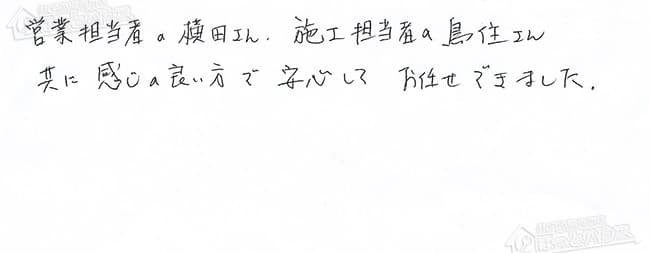 営業担当者の横田さん、施工担当者の鳥住さん
共に感じの良い方で安心してお任せできました。